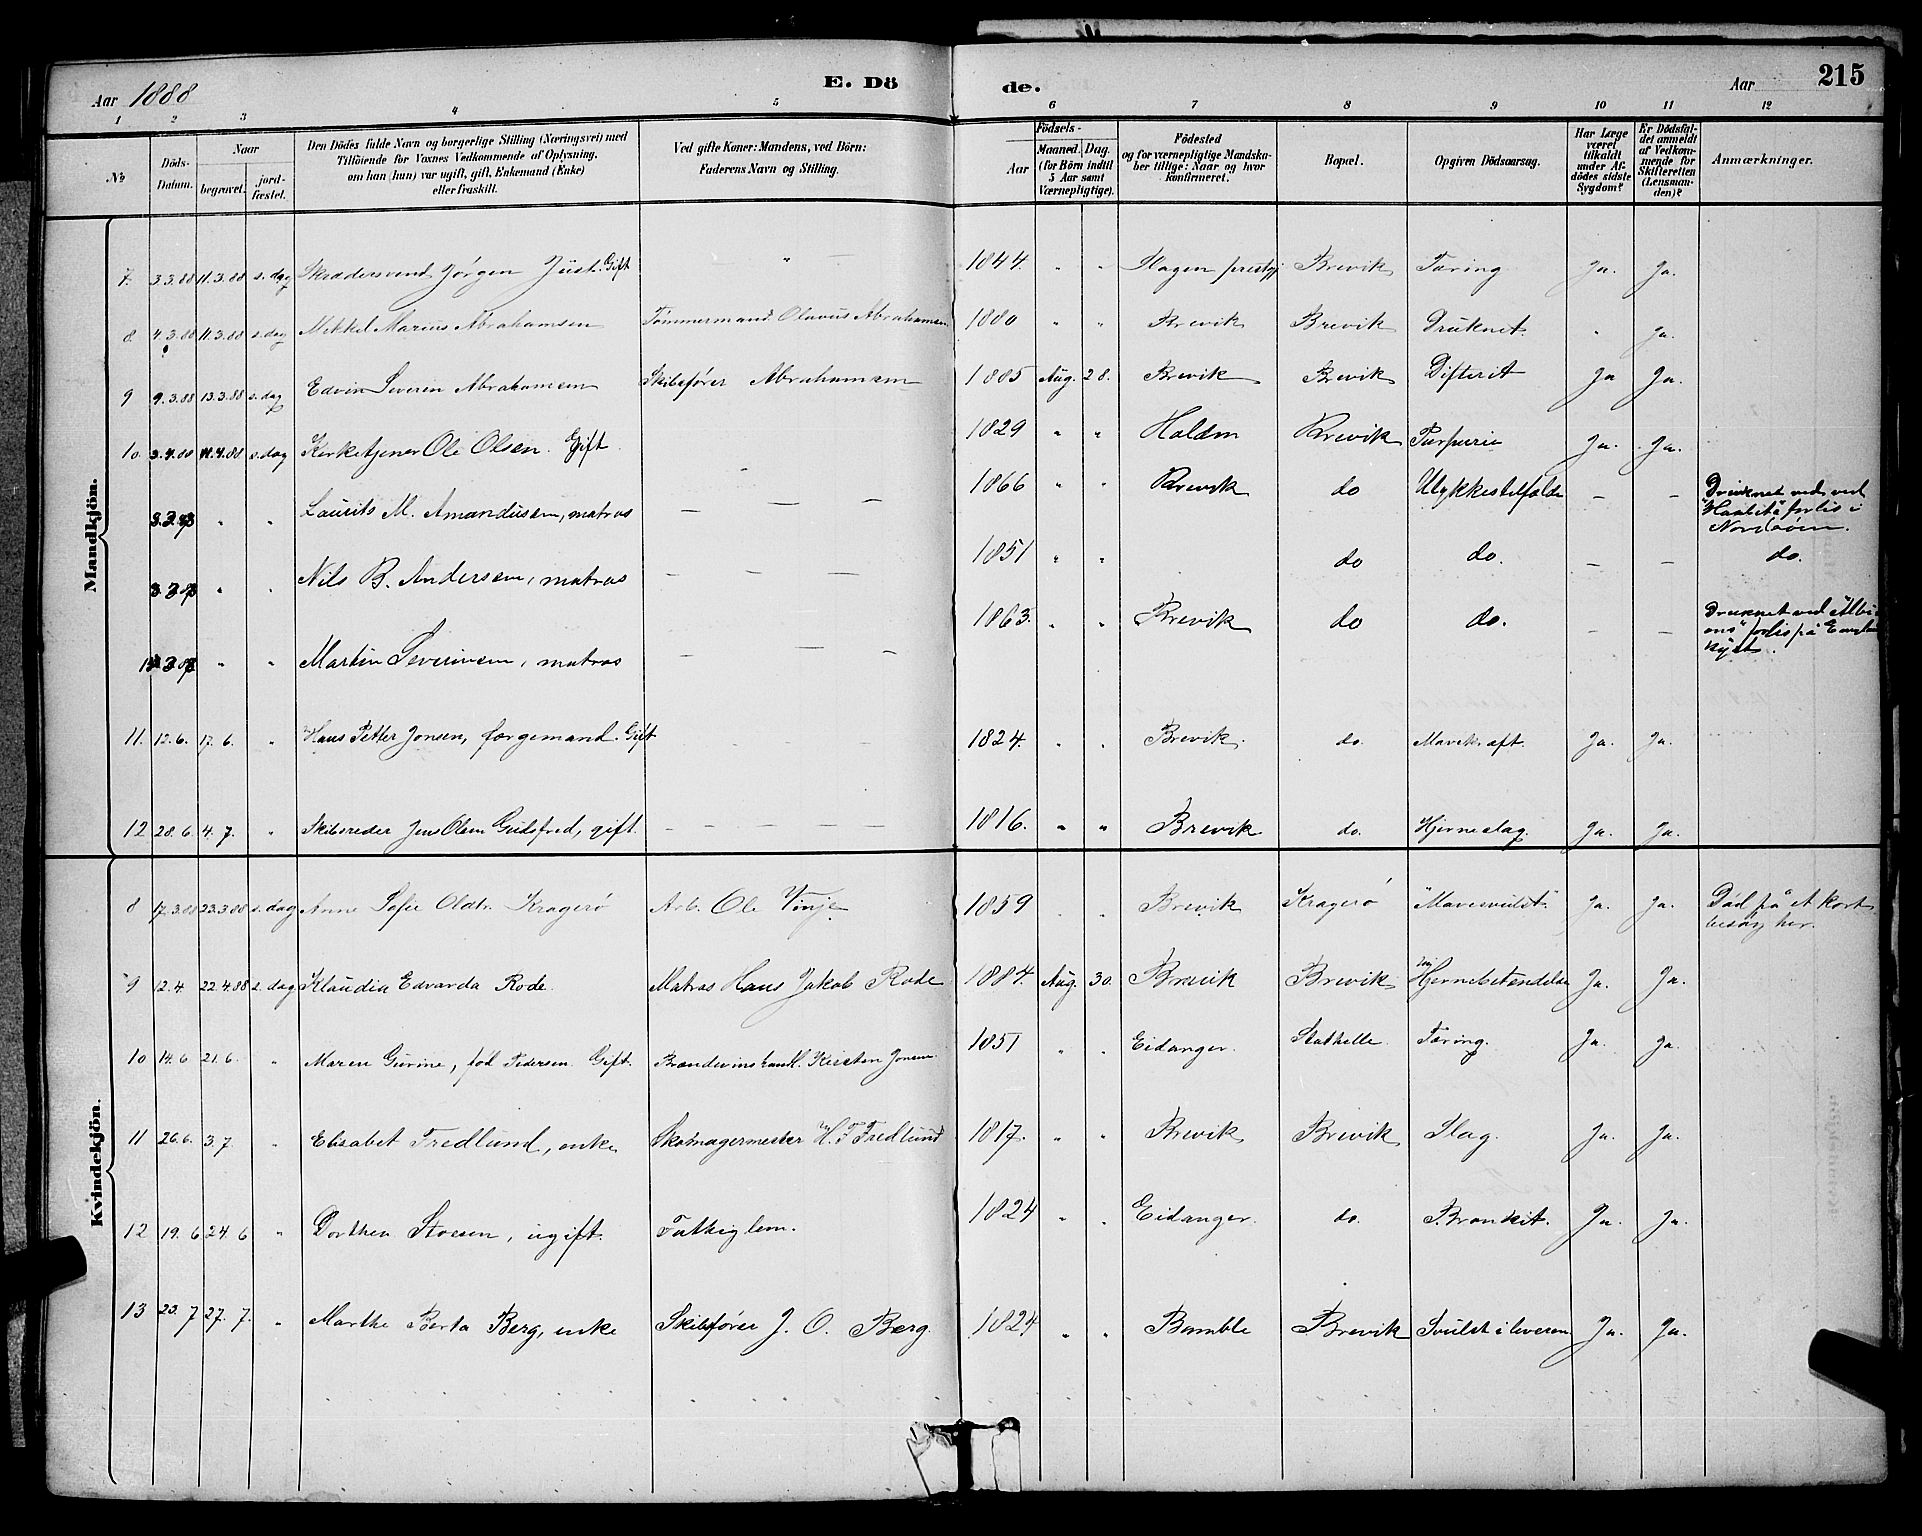 Aar 1888 E. Dö de. Aar 215
1 2 3 4 5 6 7 8 9 10 11 12
No
Döds-Datum.
Naar
begravet.
jordfæstet.
Den Dödes fulde Navn og borgerlige Stilling (Næringsvei) med
Tilföiende for Voxnes Vedkommende af Oplysning,
om han (hun) var ugift, gift, Enkemand (Enke)
eller fraskilt.
Ved gifte Koner: Mandens, ved Börn:
Faderens Navn og Stilling.
Födsels-
Aar
Maaned. Dag.
(for Börn indtil
5 Aar samt
Værnepligtige).
Födested
og for værnepligtige Mandskaber tillige: Naar og hvor
konfirmeret.
Bopæl.
Opgiven Dödsaarsag.
Har Læge
været
tilkaldt
under Afdödes sidste
Sygdom?
Er Dödsfaldet anmeldt
af Vedkommende for
Skifteretten
(Lensmanden)?
Anmærkninger.
Mandkjön.
7. 3.3.88 11.3.88 s. dag Skrædersvend Jörgen Just. Gift " — 1844. " " Slagen prestgj Brevik Tæring Ja. Ja.
8. 4.3.88 11.3.88 s. dag Mikkel Marius Abrahamsen Tömmermand Olavus Abrahamsen 1880 " " Brevik Brevik Druknet. " Ja.
9 9.3.88 13.3.88 s. dag Edvin Severin Abrahamsen Skibsförer Abrahamsen 1885 Aug. 28. Brevik Brevik Difterit Ja Ja.
10 3.4.88 11.4.88 s. dag Kirketjener Ole Olsen. Gift " 1829 " " Brevik Purpura Ja. Ja.
" " Laurits M. Amandusen, matros — — — 1866 " " Brevik do Ulykkestilfælde — — Druknet ved
"Haabets" forlis i
Nordsöen.
" " Nils B. Andersen, matros — — — 1851 " " do do. — — do.
" " Martin Severinsen, matros — — — 1863. " " Brevik do do. — — Druknet ved "Albions" forlis på
kyst.
11. 12.6. 17.6. " Hans Petter Jonsen, færgemand. Gift — — — 1824. " " Brevik. do. Mavekræft. Ja. Ja.
12 28.6. 4.7. " Skibsreder Jens Olsen Gudsfred, gift. — — — — — 1816. " " Brevik do. Hjerneslag. Ja. Ja.
Kvindekjön.
8 17.3.88 23.3.88 s. dag Anne Sofie Oldtr. Kragerö Arb. Ole Vinje 1859 " " Brevik Kragerö "Mavesvulst". Ja. Ja. Död på et kort
besög her.
9 12.4 22.4.88 s. dag Klaudia Edvarda Rode. Matros Hans Jakob Rode 1884. Aug. 30. Brevik Brevik Hjernebetændelse Ja. Ja.
10 14.6 21.6. " Maren Gurine, föd Pedersen. Gift. Brændevinshandl. Kristen Jonsen 1851 " " Eidanger. Stathelle. Tæring. Ja. Ja.
11 26.6. 3.7. " Elisabet Fredlund, enke Skomagermester H. F. Fredlund 1817. " " Brevik Brevik Slag. Ja. Ja.
12 19.6 24.6 " Dorthea Stoesen, ugift. Fattiglem. 1824 " " Eidanger. do. Bronkit. Ja. Ja.
13 23.7 27.7. " Marthe Berta Berg, enke Skibsförer J. O. Berg. 1824 " " Bamble Brevik Svulst i leveren Ja. Ja.